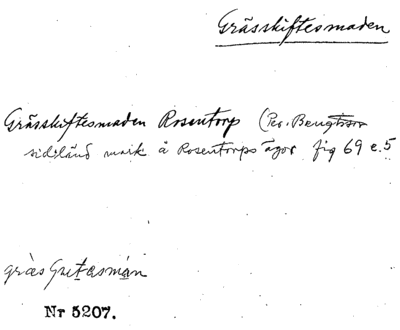 Grässkiftesmaden
Grässkiftesmaden Rosentorp (Per. Bengtsson
sidländ mark å Rosentorps ägor fig 69 e.5
Nr 5207.